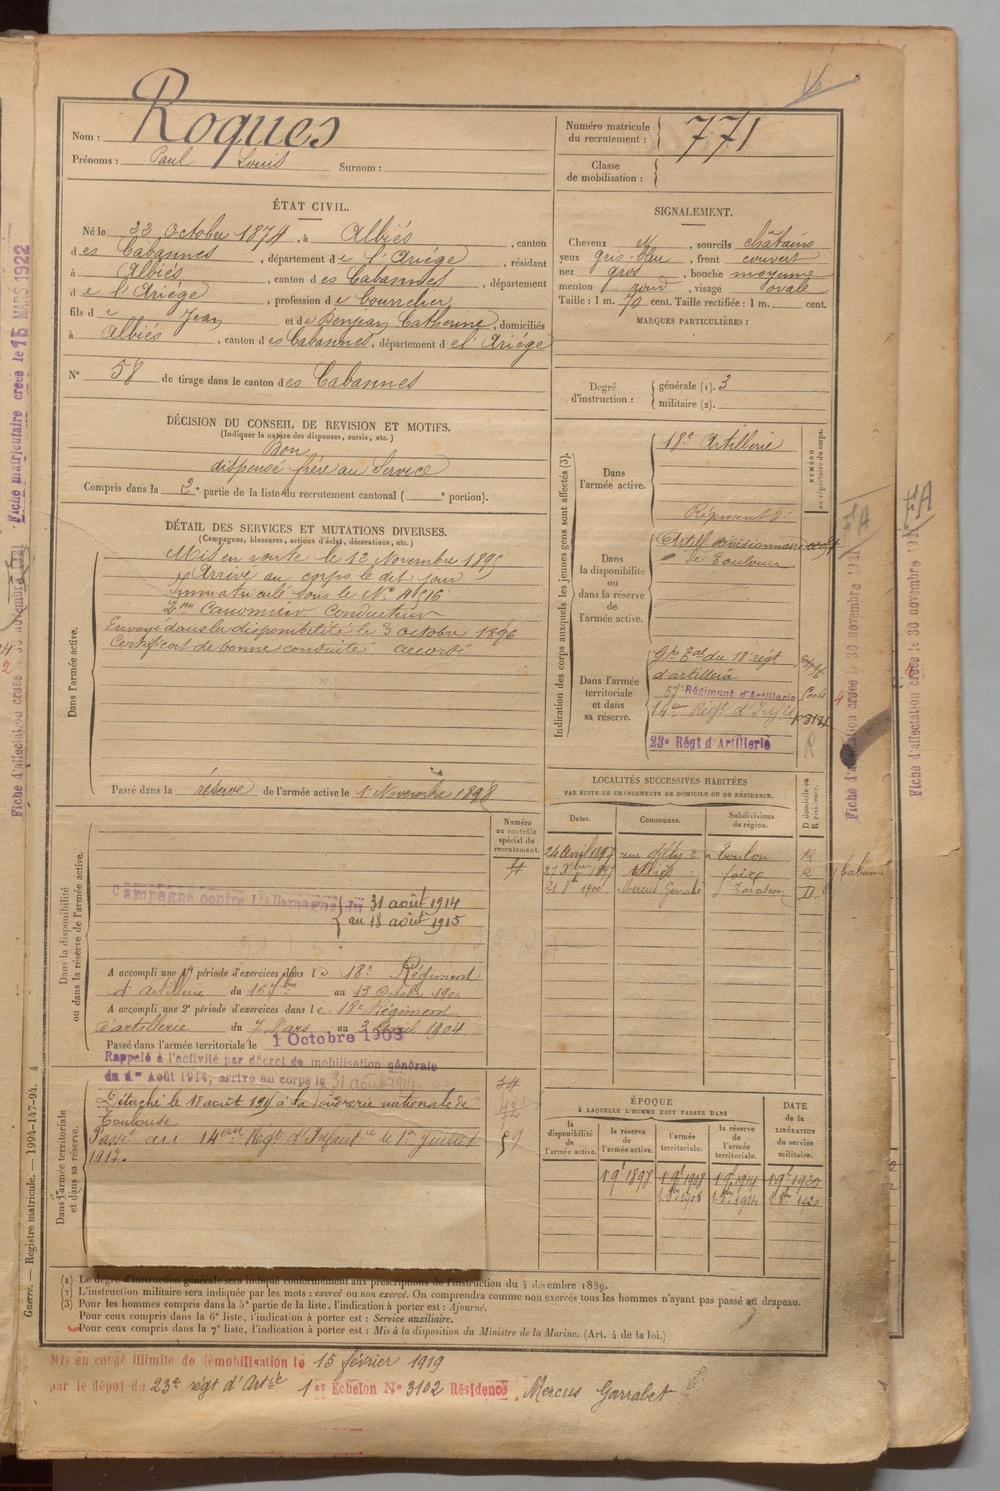 Nom : Roques
Prénoms : Paul Louis Surnom :
Numéro matricule du recrutement : 771
Classe de mobilisation :
ÉTAT CIVIL.
Né le 23 Octobre 1874, à Albiés, canton
des Cabannes, département de l'Ariége, résidant
à Albiés, canton des Cabannes, département
de l'Ariége, profession de
fils de Jean et de Catherine, domiciliés
à Albiés, canton des Cabannes, département de l'Ariége
No 58 de tirage dans le canton des Cabannes
SIGNALEMENT.
Cheveux et, sourcils châtains
yeux gris-bleu, front couvert
nez gros, bouche moyenne
menton rond, visage ovale
Taille : 1 m. 70 cent. Taille rectifiée : 1 m. cent.
MARQUES PARTICULIÈRES :
Degré d'instruction : générale (1). 3
militaire (2).
DÉCISION DU CONSEIL DE REVISION ET MOTIFS.
(Indiquer la nature des dispenses, sursis, etc.)
Bon
dispensé frère au Service
Compris dans la 2e partie de la liste du recrutement cantonal ( e portion).
DÉTAIL DES SERVICES ET MUTATIONS DIVERSES.
(Campagnes, blessures, actions d'éclat, décorations, etc.)
Dans l'armée active.
Mis en route le 12 Novembre 1895
Arrivé au corps le dit jour
Immatriculé sous le No 4816
2me Canonnier Conducteur
Envoyé dans la disponibilité le 3 octobre 1896
Certificat de bonne conduite accordé
Passé dans la réserve de l'armée active le 1 Novembre 1898
Indication des corps auxquels les jeunes gens sont affectés (3).
NUMÉRO au répertoire du corps.
Dans l'armée active.
18e Artillerie
Dans la disponibilité ou dans la réserve de l'armée active.
Régiment d'
Artie divisionnaire
de Toulouse
Dans l'armée territoriale et dans sa réserve.
Gpe Tal du 18e régt
d'artillerie
57e Régiment d'Artillerie
14eme Régt d'Infie
23e Régt d'Artillerie
LOCALITÉS SUCCESSIVES HABITÉES
PAR SUITE DE CHANGEMENTS DE DOMICILE OU DE RÉSIDENCE.
Dates. Communes. Subdivisions de région. D domicile ou R résidence.
24 Avril 1897 Toulon R
27 Xbre 1897 Albiés foix R
21 1900 Mercus Garrabet D
Numéro au contrôle spécial du recrutement.
Dans la disponibilité ou dans la réserve de l'armée active.
Campagne contre l'Allemagne du 31 août 1914
au 18 août 1915
A accompli une 1e période d'exercices dans le 18e Régiment
d'artillerie du 16 7bre au 13 Octobre 190
A accompli une 2e période d'exercices dans le 18e Régiment
d'artillerie du 7 Mars au 3 Avril 1904
Passé dans l'armée territoriale le 1 Octobre 1908
Rappelé à l'activité par décret de mobilisation générale
du 1er Août 1914, arrivé au corps le 31 août 1914
Dans l'armée territoriale et dans sa réserve.
Détaché le 18 août 191 à la poudrerie nationale de
Toulouse
Passé au 14eme Régt d'Infantie le 1er Juillet
1917.
ÉPOQUE
À LAQUELLE L'HOMME DOIT PASSER DANS
la disponibilité de l'armée active. la réserve de l'armée active. l'armée territoriale. la réserve de l'armée territoriale.
DATE de la LIBÉRATION du service militaire.
1 9t 1898 1 9t 1908 1 9t 1914 1 9t 1920
(1) Le degré d'instruction générale sera indiqué conformément aux prescriptions de l'instruction du 4 décembre 1889.
(2) L'instruction militaire sera indiquée par les mots : exercé ou non exercé. On comprendra comme non exercés tous les hommes n'ayant pas passé au drapeau.
(3) Pour les hommes compris dans la 5e partie de la liste, l'indication à porter est : Ajourné.
Pour ceux compris dans la 6e liste, l'indication à porter est : Service auxiliaire.
Pour ceux compris dans la 7e liste, l'indication à porter est : Mis à la disposition du Ministre de la Marine. (Art. 4 de la loi.)
Mis en congé illimité de démobilisation le 15 février 1919
par le dépôt du 23e régt d'Artie 1er Echelon No 3102 Résidence Mercus Garrabet
Guerre. — Registre matricule. — 1994-147-94. 4
Fiche matriculaire créée le 15 MARS 1922
Fiche d'affectation créée le 30 novembre 1921
Fiche d'affectation créée le 30 novembre 1921